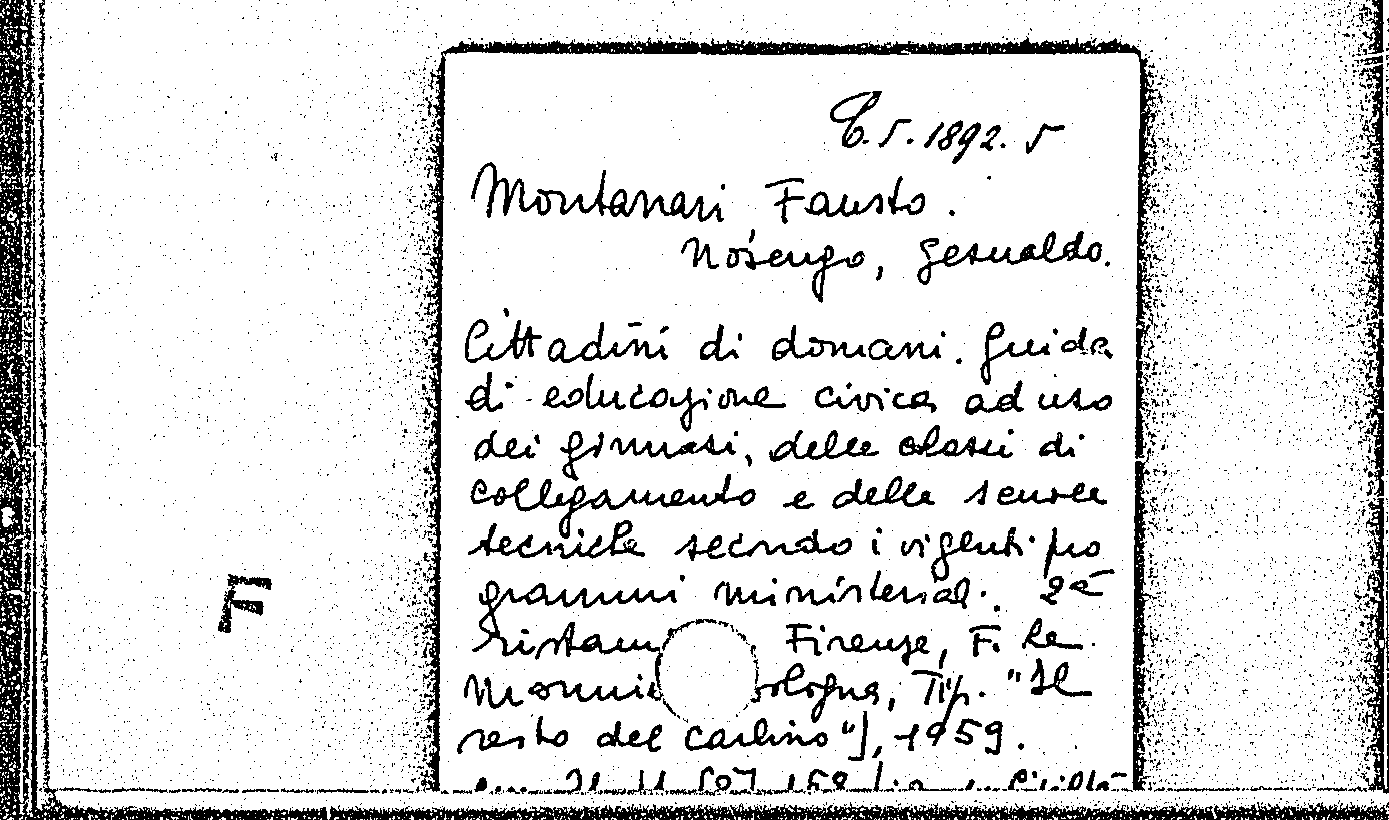 C.5.1892.5
Montanari Fausto.
Nosengo, Gesualdo.
Cittadini di domani. Guida
di educazione civica ad uso
dei ginnasi, delle classi di
collegamento e delle scuole
tecniche secondo i vigenti pro
grammi ministeriali. 2a
ristam Firenze, F. Le
Monnie ologna, Tip. "Il
resto del Carlino"], 1959.
F